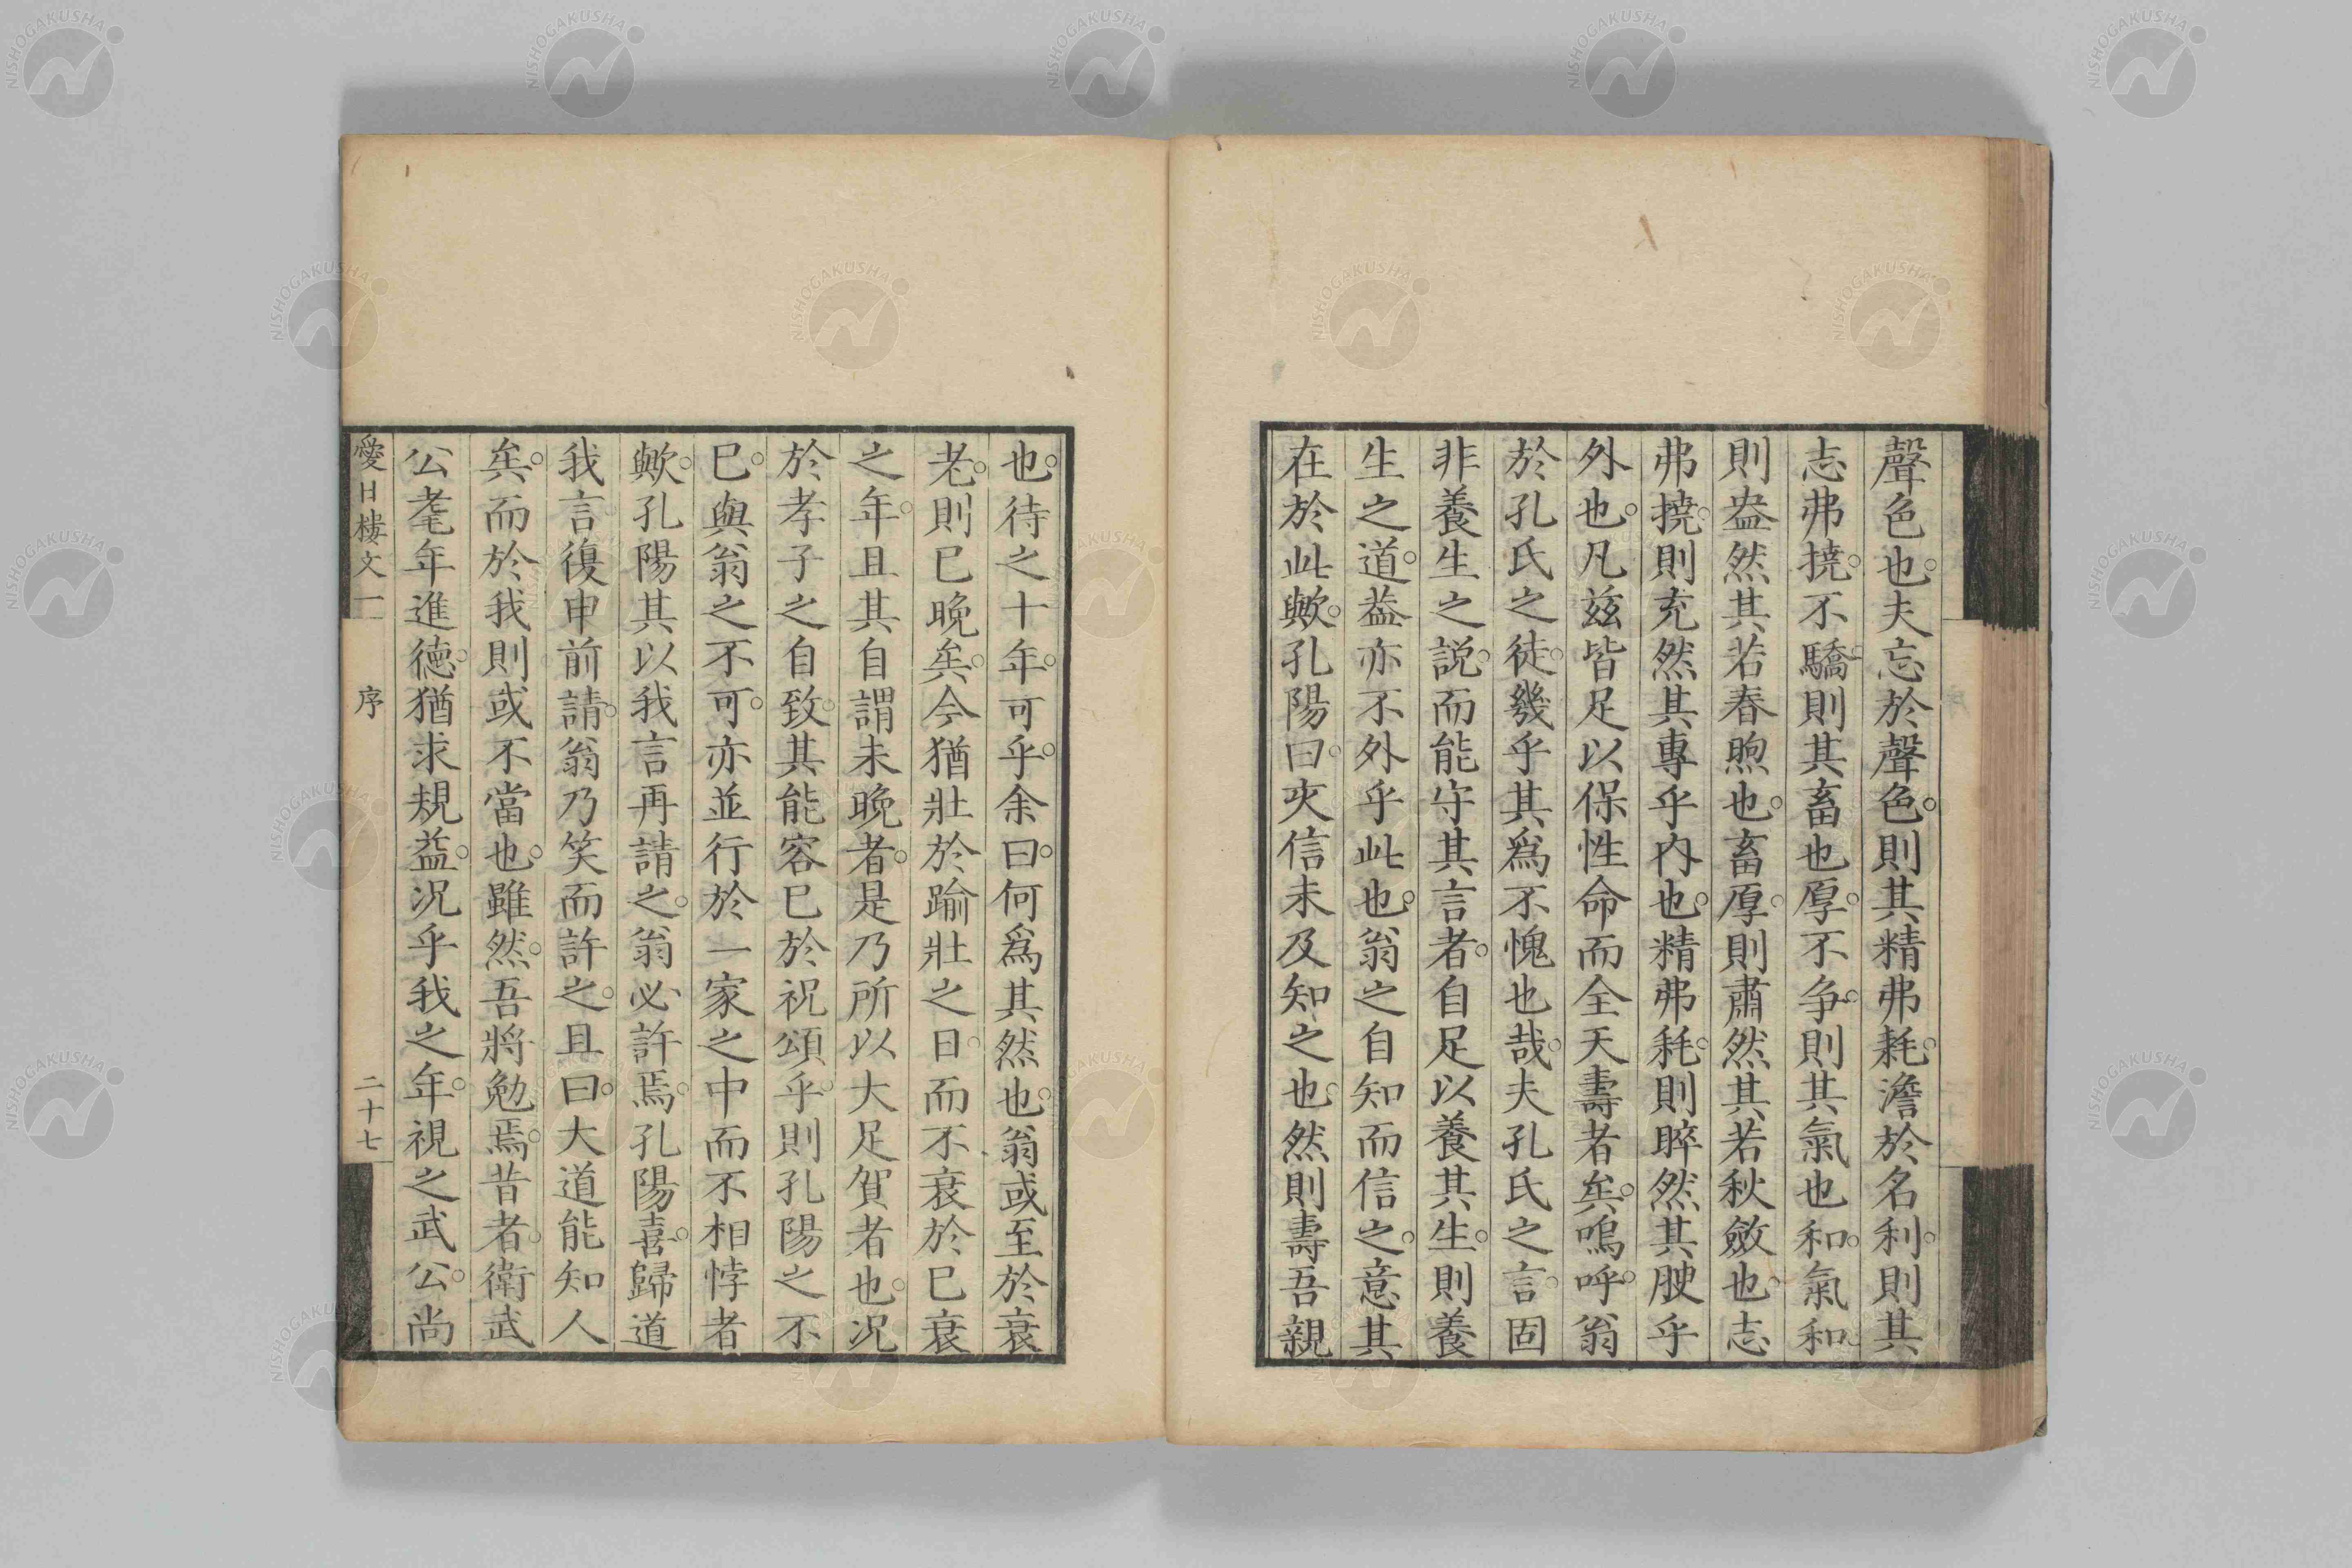 聲色也。夫忘於聲色。則其精弗耗。澹於名利。則其
志弗撓。不驕則其畜也厚。不争。則其氣也和。氣和
則盎然其若春煦也。畜厚。則肅然其若秋斂也。志
弗撓。則充然其專乎内也。精弗耗。則睟然其腴乎
外也。凡兹皆足以保性命而全天壽者矣。嗚呼。翁
於孔氏之徒。幾乎其爲不愧也哉。夫孔氏之言。固
非養生之説。而能守其言者。自足以養其生。則養
生之道。葢亦不外乎此也。翁之自知而信之。意其
在於此歟。孔陽曰。夾信未及知之也。然則壽吾親
也。待之十年。可乎。余曰。何爲其然也。翁或至於衰
老。則已晩矣。今猶壯於踰壯之日。而不衰於已衰
之年。且其自謂未晩者。是乃所以大足賀者也。况
於孝子之自致。其能容已於祝頌乎。則孔陽之不
已。與翁之不可。亦並行於一家之中而不相悖者
歟。孔陽其以我言再請之。翁必許焉。孔陽喜。歸道
我言復申前請。翁乃笑而許之。且曰。大道能知人
矣。而於我則或不當也。雖然。吾將勉焉。昔者。衛武
公耄年進德。猶求規益。况乎我之年。視之武公。尚
愛日樓文一 序 二十七
NISHOGAKUSHA